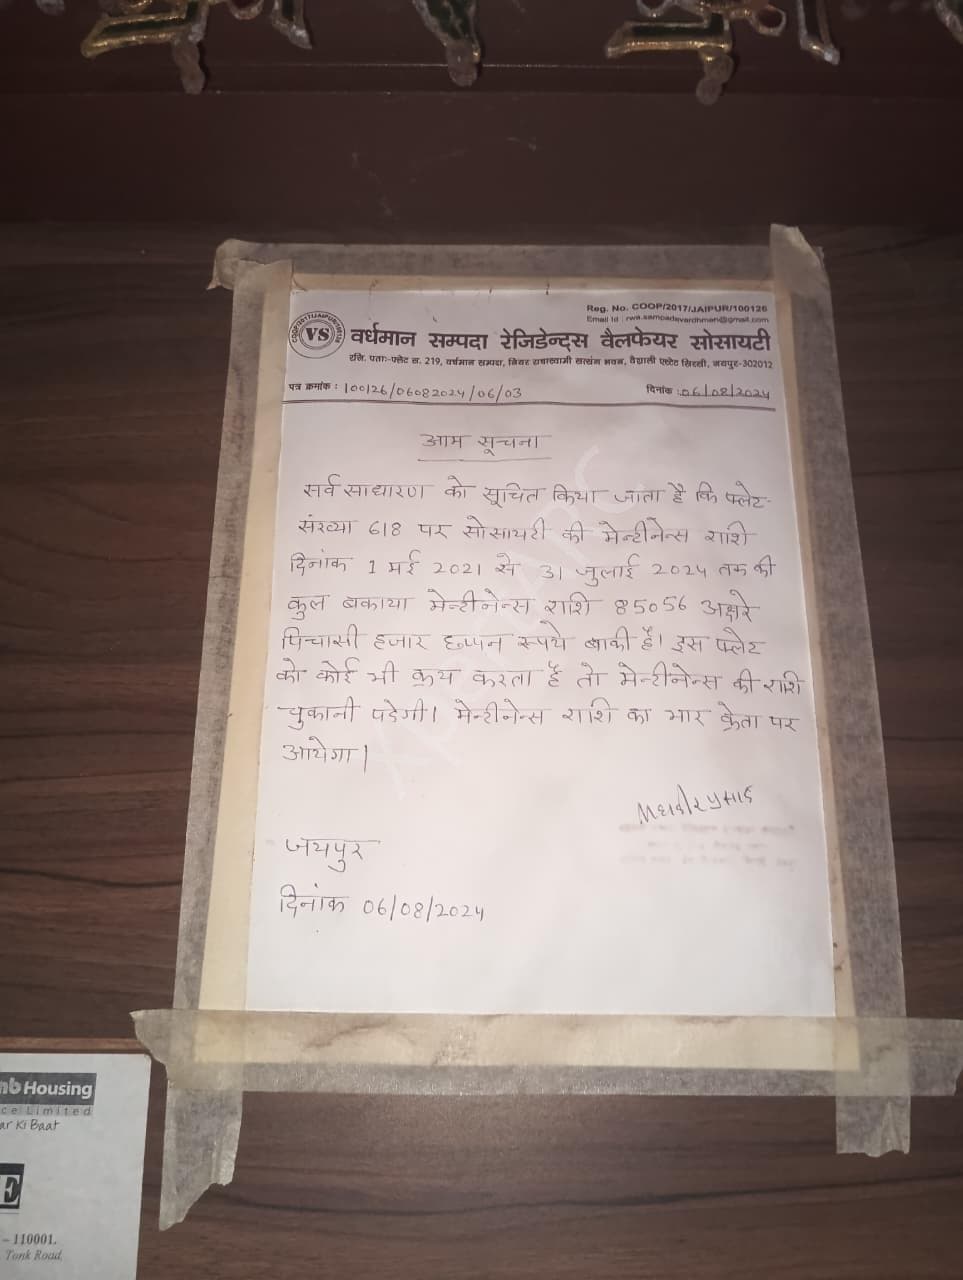 Reg. No. COOP/2017/JAIPUR/100126
Email Id : rwa.sampadavardhman@gmail.com
COOP/2017/JAIPUR/100126
VS
वर्धमान सम्पदा रेजिडेन्ट्स वैलफेयर सोसायटी
रजि. पताः-फ्लेट स. 219, वर्धमान सम्पदा, नियर राधास्वामी सत्संग भवन, वैशाली एस्टेट सिरसी, जयपुर-302012
पत्र क्रमांक : 100126/06082024/06/03 दिनांक : 06/08/2024
आम सूचना
सर्व साधारण को सूचित किया जाता है कि फ्लेट-
संख्या 618 पर सोसायटी की मेन्टीनेन्स राशि
दिनांक 1 मई 2021 से 31 जुलाई 2024 तक की
कुल बकाया मेन्टीनेन्स राशि 85056 अक्षरे
पिचासी हजार छप्पन रूपये बाकी है। इस फ्लेट
को कोई भी क्रय करता है तो मेन्टीनेन्स की राशि
चुकानी पडेगी। मेन्टीनेन्स राशि का भार क्रेता पर
आयेगा।
जयपुर
दिनांक 06/08/2024
nb Housing
ce Limited
ar Ki Baat
E
- 110001.
Tonk Road,